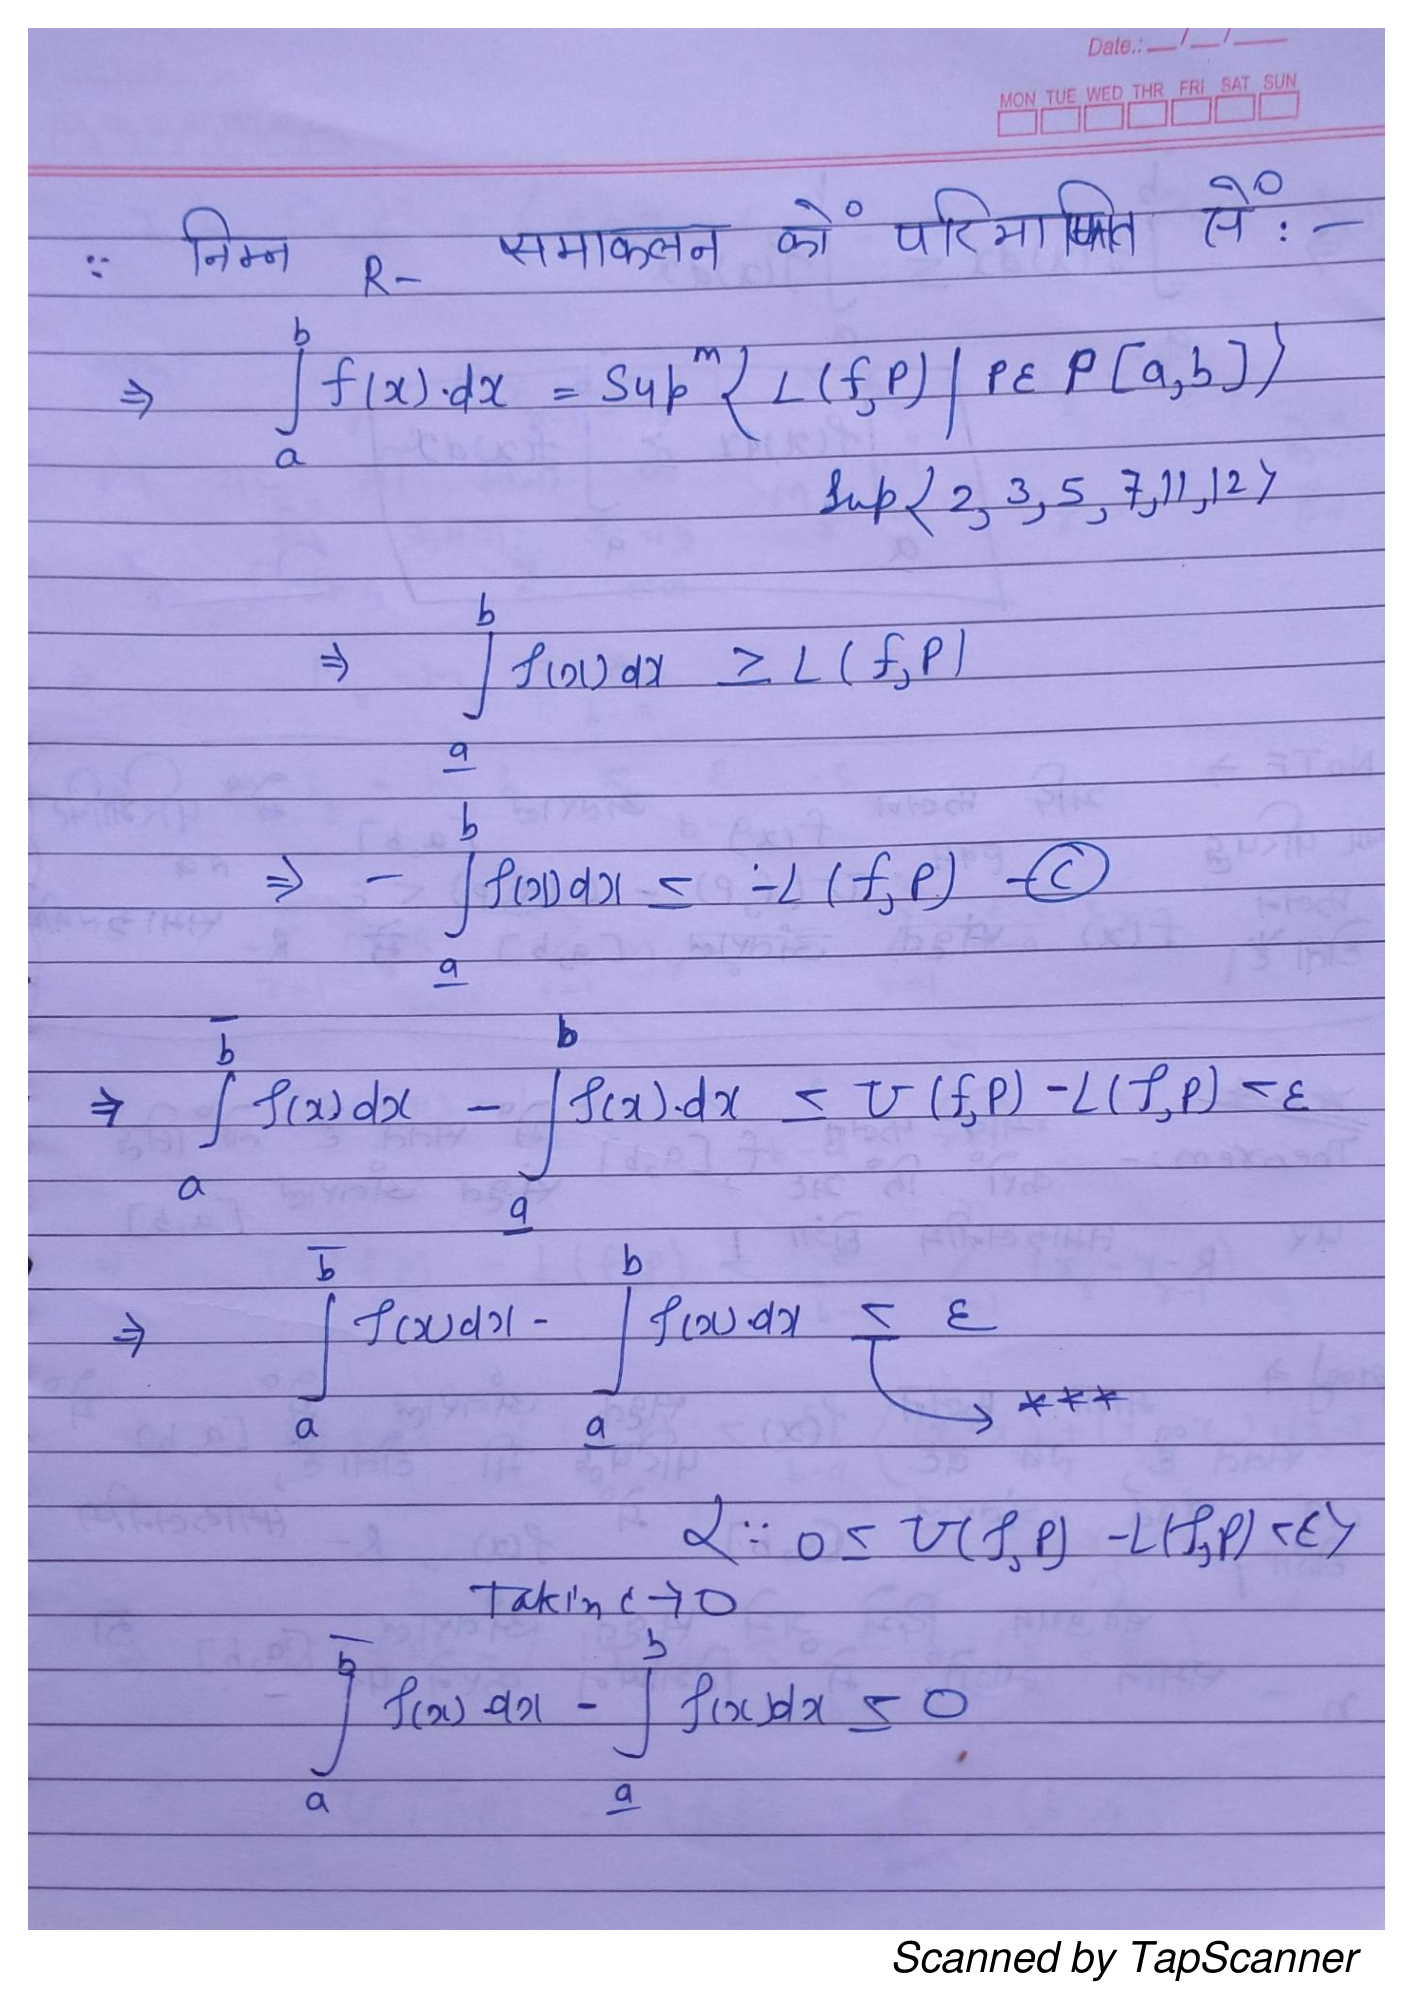 Date.: __/__/__
MON TUE WED THR FRI SAT SUN
∵ निम्न R- समाकलन को० परिभाषित से०:-
⇒ b ∫ a f(x).dx = Supᵐ { L(f,P) | P ε P[a,b] }
Sup{ 2, 3, 5, 7, 11, 12 }
⇒ b ∫ a̲ f(x)dx ≥ L(f,P)
⇒ - b ∫ a̲ f(x)dx ≤ -L(f,P) -Ⓒ
⇒ b̅ ∫ a f(x)dx - b ∫ a̲ f(x).dx ≤ U(f,P) - L(f,P) < ε
⇒ b̅ ∫ a f(x)dx - b ∫ a̲ f(x).dx ≤ ε
***
{ ∵ 0 ≤ U(f,P) - L(f,P) < ε }
Takin ε→0
b̅ ∫ a f(x).dx - b ∫ a̲ f(x)dx ≤ 0
Scanned by TapScanner